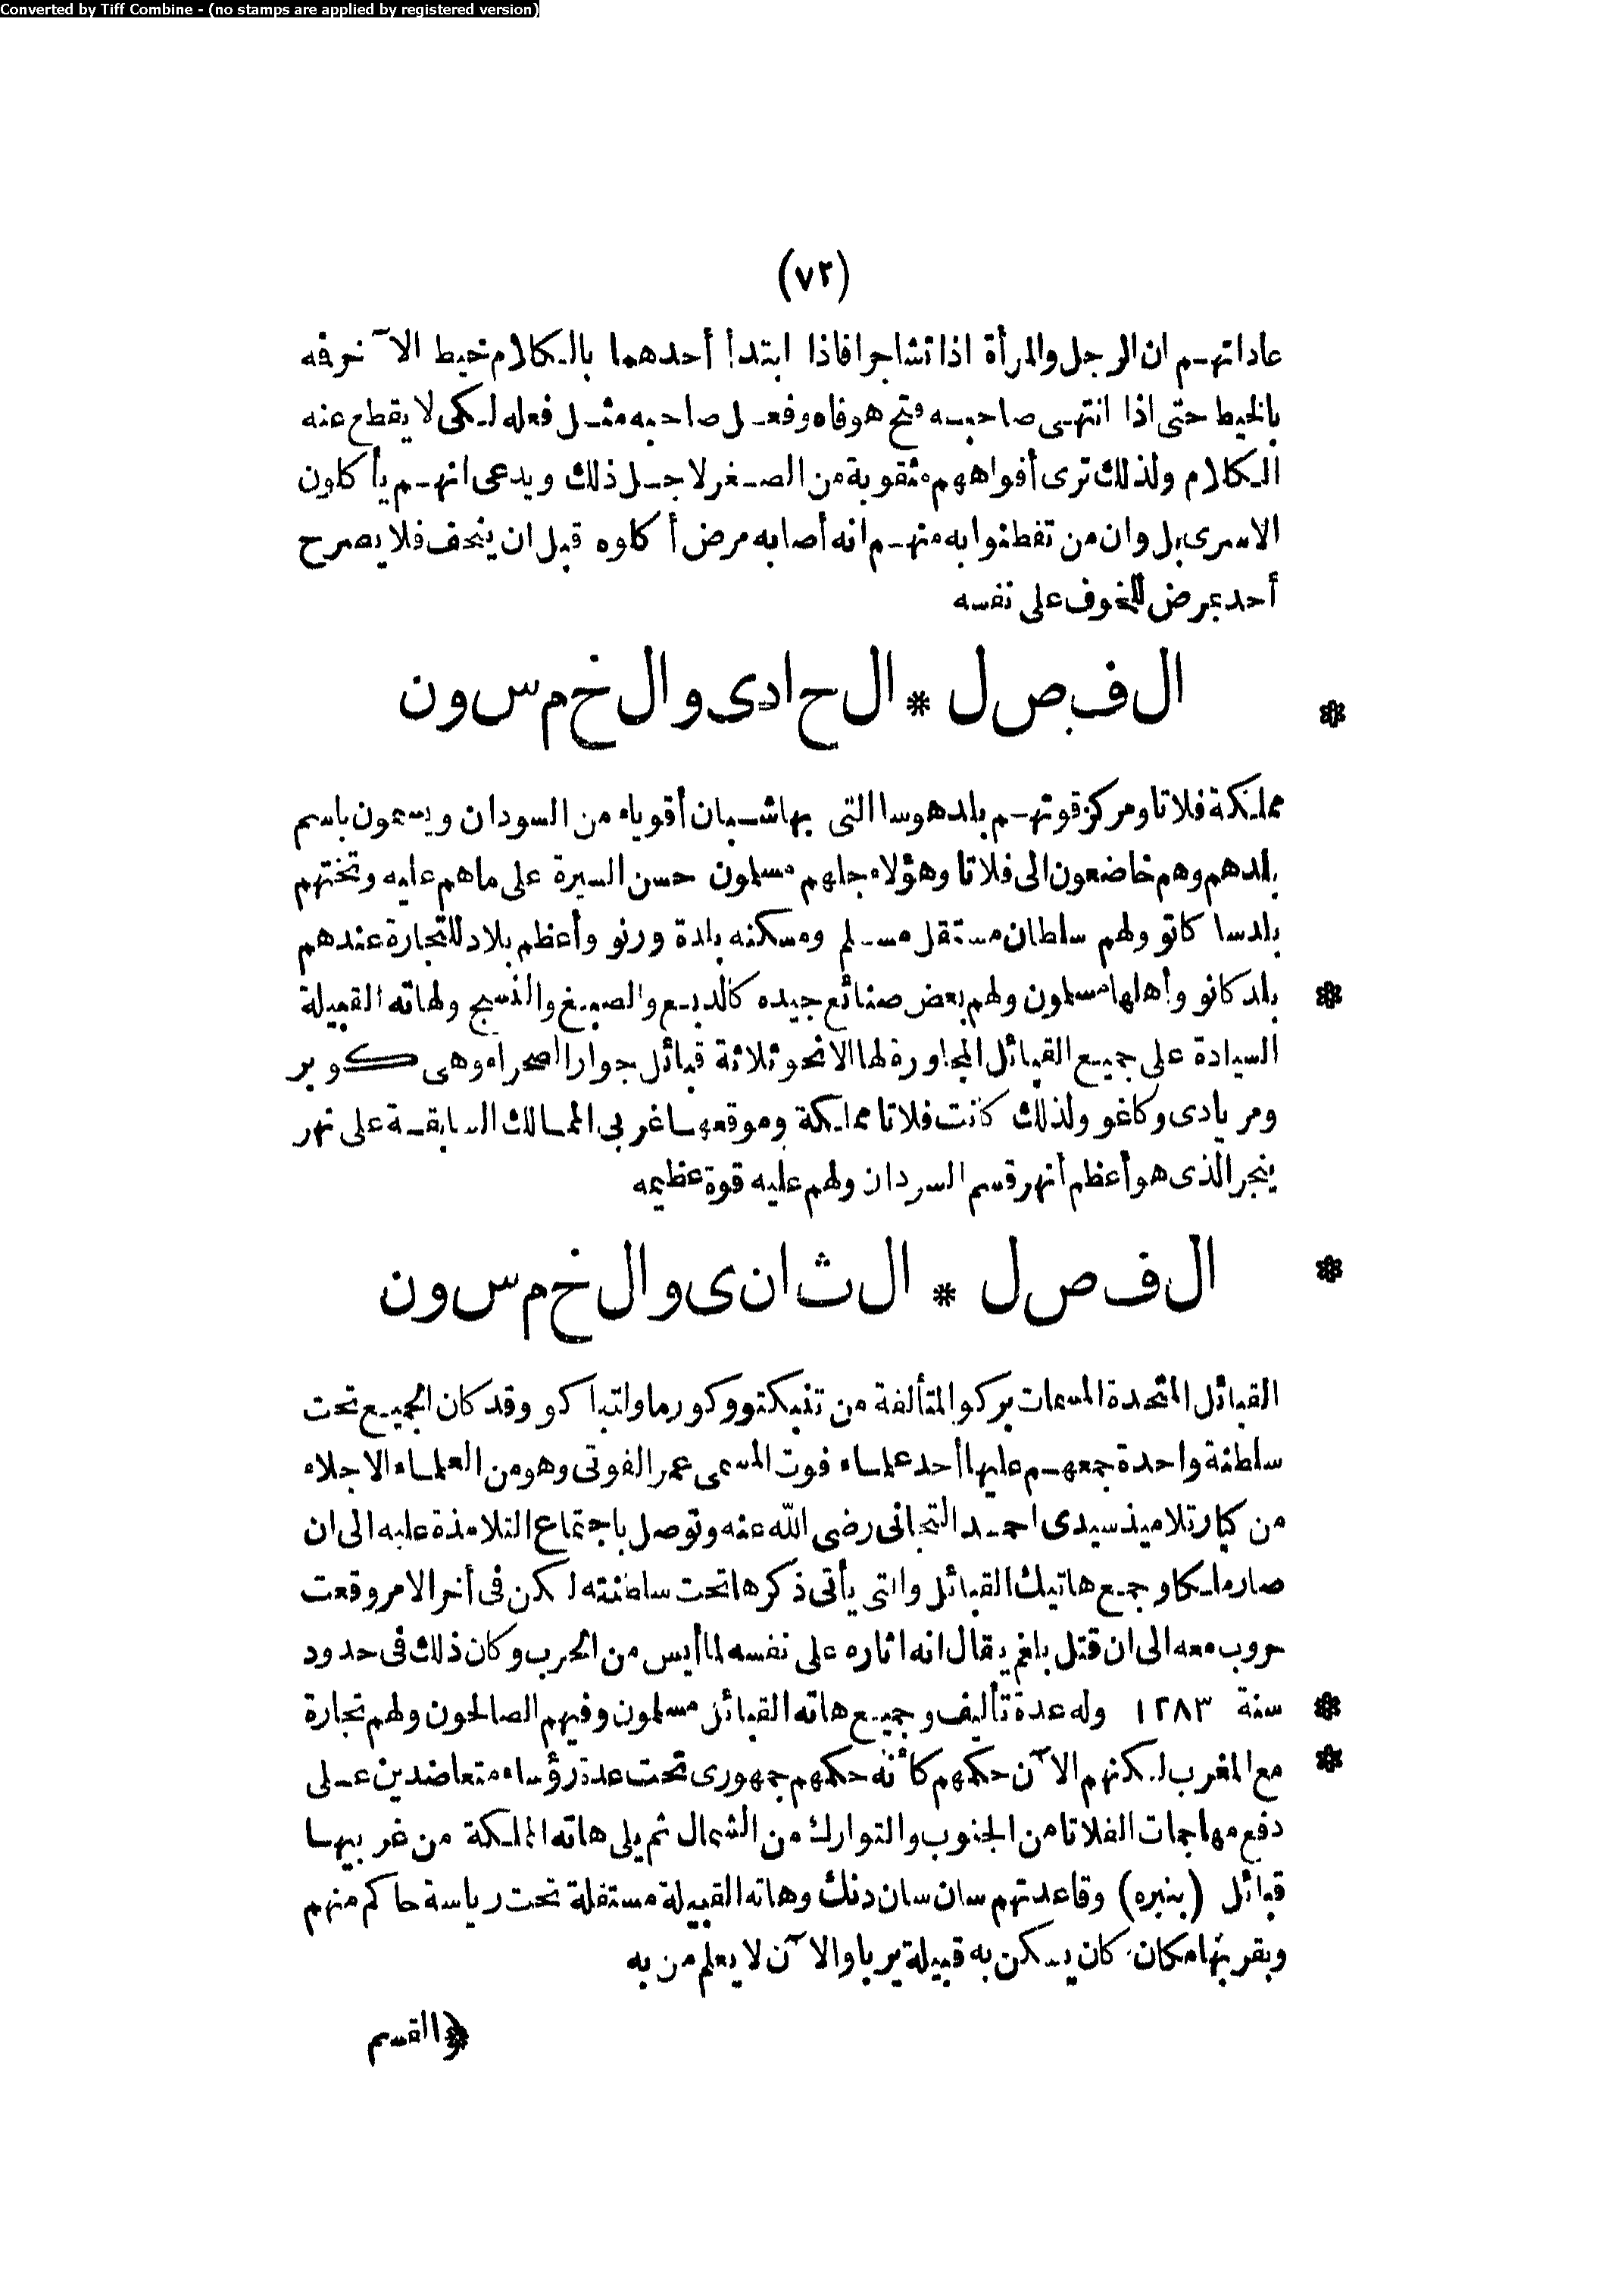 Converted by Tiff Combine - (no stamps are applied by registered version)
(٧٢)
عاداتهم ان الرجل والمرأة اذا تشاجرا فاذا ابتدأ أحدهما بالكلام خيط الآخر فه
بالخيط حتى اذا انتهى صاحبه فتح هو فاه وفعل صاحبه مثل فعله لكى لا يقطع عنه
الكلام ولذلك ترى أفواههم مثقوبة من الصغر لاجل ذلك ويدعى انهم يأكلون
الاسرى بل وان من تفطنوا به منهم انه أصابه مرض أكلوه قبل ان ينحف فلا يصرح
أحد بمرض للخوف على نفسه
الفصل * الحادى والخمسون
مملكة فلاتا ومركز قوتهم بلد هوسا التى بها شبان أقوياء من السودان ويسمون باسم
بلدهم وهم خاضعون الى فلاتا وهؤلاء جلهم مسلمون حسن السيرة على ما هم عليه وتختهم
بلد سا كاتو ولهم سلطان مستقل مسلم ومسكنه بلدة ورنو وأعظم بلاد للتجارة عندهم
بلد كانو وأهلها مسلمون ولهم بعض صنائع جيده كالدبغ والصبغ والنسج ولهاته القبيلة
السيادة على جميع القبائل المجاورة لها الا نحو ثلاثة قبائل جوار الصحراء وهى كوبر
ومريادى وكاغو ولذلك كانت فلاتا مملكة وموقعها غربى الممالك السابقة على نهر
ينجر الذى هو أعظم أنهر قسم السودان ولهم عليه قوة عظيمه
الفصل * الثانى والخمسون
القبائل المتحدة المسمات بركو المتألفة من تنبكتو وكورما ولتباكو وقد كان الجميع تحت
سلطنة واحدة جمعهم عليها أحد علماء فوت المسمى عمر الفوتى وهو من العلماء الاجلاء
من كبار تلاميذ سيدى احمد التجانى رضى الله عنه وتوصل باجتماع التلامذة عليه الى ان
صار ملكا وجميع هاتيك القبائل والتى يأتى ذكرها تحت سلطنته لكن فى أخر الامر وقعت
حروب معه الى ان قتل بلغم يقال انه اثاره على نفسه لما أيس من الحرب وكان ذلك فى حدود
سنة ١٢٨٣ وله عدة تأليف وجميع هاته القبائل مسلمون وفيهم الصالحون ولهم تجارة
مع المغرب لكنهم الآن حكمهم كأنه حكمهم جمهورى تحت عدة رؤساء متعاضدين على
دفع مهاجمات الفلاتا من الجنوب والتوارك من الشمال ثم يلى هاته المملكة من غربيها
قبائل (بنبره) وقاعدتهم سان سان دنك وهاته القبيلة مستقلة تحت رياسة حاكم منهم
وبقربها مكان كان يسكن به قبيلة يربا والآن لا يعلم من به
والقسم